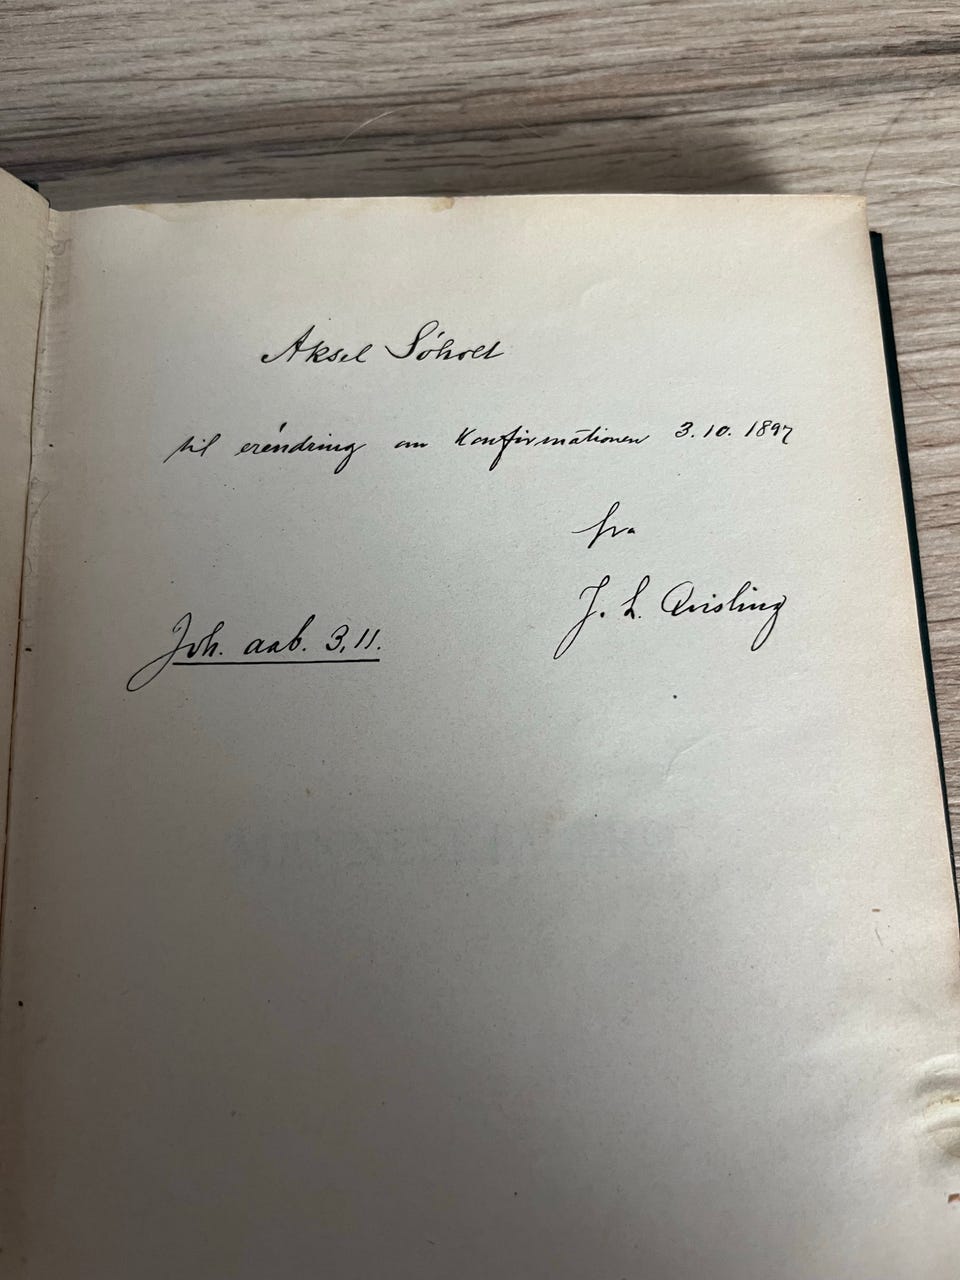 Aksel Söholt
til erindring om Konfirmationen 3.10.1897
fra
J. L. Qvisling
Joh. aab. 3,11.